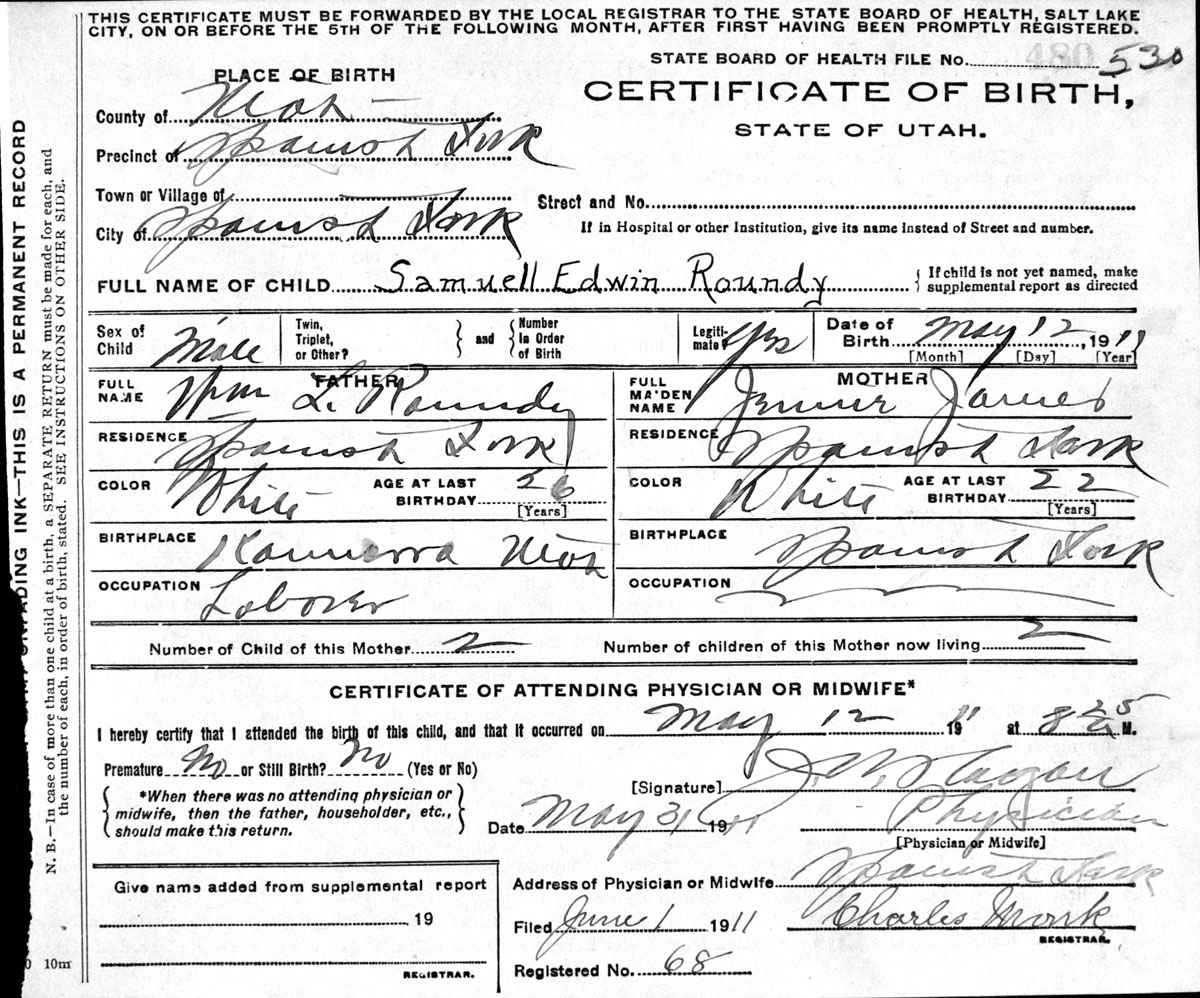 THIS CERTIFICATE MUST BE FORWARDED BY THE LOCAL REGISTRAR TO THE STATE BOARD OF HEALTH, SALT LAKE
CITY, ON OR BEFORE THE 5TH OF THE FOLLOWING MONTH, AFTER FIRST HAVING BEEN PROMPTLY REGISTERED.
STATE BOARD OF HEALTH FILE No. 480 530
PLACE OF BIRTH
CERTIFICATE OF BIRTH,
STATE OF UTAH.
County of Utah
Precinct of Spanish Fork
Town or Village of
Street and No.
City of Spanish Fork
If in Hospital or other Institution, give its name instead of Street and number.
FULL NAME OF CHILD Samuell Edwin Roundy { If child is not yet named, make supplemental report as directed
Sex of Child Male Twin, Triplet, or Other? } and { Number in Order of Birth Legiti-mate? Yes Date of Birth May 12, 1911
[Month] [Day] [Year]
FATHER
FULL NAME Wm L. Roundy
MOTHER
FULL MAIDEN NAME Jennie James
RESIDENCE Spanish Fork
RESIDENCE Spanish Fork
COLOR White AGE AT LAST BIRTHDAY 26 [Years]
COLOR White AGE AT LAST BIRTHDAY 22 [Years]
BIRTHPLACE Kannarra Utah
BIRTHPLACE Spanish Fork
OCCUPATION Laborer
OCCUPATION
Number of Child of this Mother 2 Number of children of this Mother now living 2
CERTIFICATE OF ATTENDING PHYSICIAN OR MIDWIFE*
I hereby certify that I attended the birth of this child, and that it occurred on May 12 1911 at 8 25 a M.
Premature No or Still Birth? No (Yes or No)
[Signature] J. W.
*When there was no attending physician or
midwife, then the father, householder, etc.,
should make this return.
Date May 31 1911 Physician
[Physician or Midwife]
Give name added from supplemental report
19
REGISTRAR.
Address of Physician or Midwife Spanish Fork
Filed June 1 1911 Charles Monk
REGISTRAR.
Registered No. 68
FADING INK—THIS IS A PERMANENT RECORD
N. B.—In case of more than one child at a birth, a SEPARATE RETURN must be made for each, and
the number of each, in order of birth, stated. SEE INSTRUCTIONS ON OTHER SIDE.
0 10m